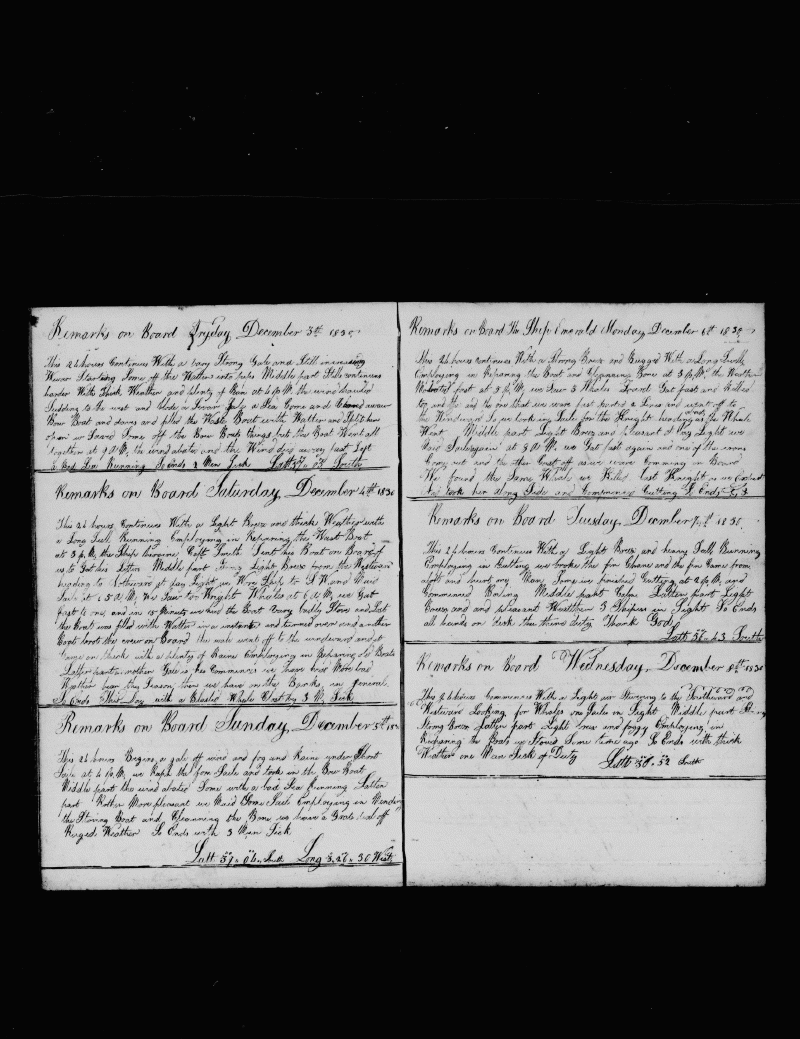 Remarks on Board Fryday December 3th 1830
This 24 hours Continues With a very Strong Gale and Still increasing
Wever Starting Some off the Watter into Sales Middle part Still continues
harder With Thick Weather and plenty of Rain at 6 P,M, the wind hauled
Sudding to the west and blode a a Sea Come and away
Bow Boat and daves and filled the Wast Boat with Watter and Split him
open we Saved Some off the Bow Boats things but the Boat Went all
together at 9 A,M, the wind abates and the Wind dies away fast Left
a Bad Sea Running So Ends 2 Men Sick Latt 37 South
Remarks on Board Saturday, December 4th 1830
This 24 hours, Continues With a Light Breze and thick Weather with
a Long Sall, Running Employing in Repairing the Wast Boat
at 3 P,M, the Ship heroine Capt Smith Sent his Boat on Board of
us to Get his Letters Middle part Strong Light Breze from the Westward
heading to Sothward at Day Light we Wore Ship to N Ward Maid
Sail at 5 A,M, We Saw two Wright Whales at 6 A,M, we Got
fast to one, and in 15 Minutes we had the Boat Very badly Stove and Lost
the Boat was filled with Watter in a instante and turned over and another
Boat took the crew on Board the male went off to the windward and it
Came on thick with a plenty of Raine Employing in Repairing old Boats
Latter part another Gale is Commencis we have had More bad
Weather hear this Season, than we have on the Banks, in general
So Ends This Day with a Blasted Whale Clost by 3 M, Sick
Remarks on Board Sunday, December 5th 18
This 24 hours Begins a gale off wind and fog and Raine under Short
Sail at 4 P,M, we Reeft the fore Saile and took in the Bow Boat
Middle part the wind abates Some with a bad Sea Running Latter
part Rather More plesant we Maid Some Sail Employing in Mending
the Stoving Boat and Cleanning the Bone we have a Great deal off
Ruged Weather So Ends with 3 Man Sick
Latt 37,, 06,, South Long 30 West
Remarks on Board The Ship Emerald Monday December 6th 1830
This 24 hours Continues With a Strong Breze and Ruged With a Long Swell
Employing in Reparing the Boat and Cleanning Bone at 3 P,M, the Weather
part at 5 P,M, we Saw 3 Whales Got fast and Killed
too and the one that we were fast parted a Line and went off to
the Windward So we took in Sale for the Knight heading to the Whale
West Middle part Light Breze and pleasant at Day Light we
Maid Sail again at 8 A,M, we Got fast again and one of the irons
Come out and the other Cast off as we were Comming on Board
We found the Same Whale we Killed last Knight
took her along Side and Commenced Cutting So Ends
Remarks on Board Tuesday, December 7th 1830
This 24 hours Continues With a Light Breze and heavy Sall, Running
Employing in Cutting we broke the fin Chane and the fin Came from
aloft and hurt one Man Some we finished Cutting at 2 P,M, and
Commenced Boiling Middle part Calm Latter part Light
Brezes and and pleasant Weather 3 Shipes in Sight So Ends
all hands on deck then there duty Thank God
Latt 37,, 43 South
Remarks on Board Wednesday, December 8th 1830
This 24 hours Commences With a Light air Steering to the Southward and
Westward Looking for Whales one Saile in Sight Middle part Strong
Strong Breze Latter part Light Brez and foggy Employing in
Reparing the Boats we Stoved Some time ago So Ends with thick
Weather one Man Sick of Duty Latt 38,, 52 South